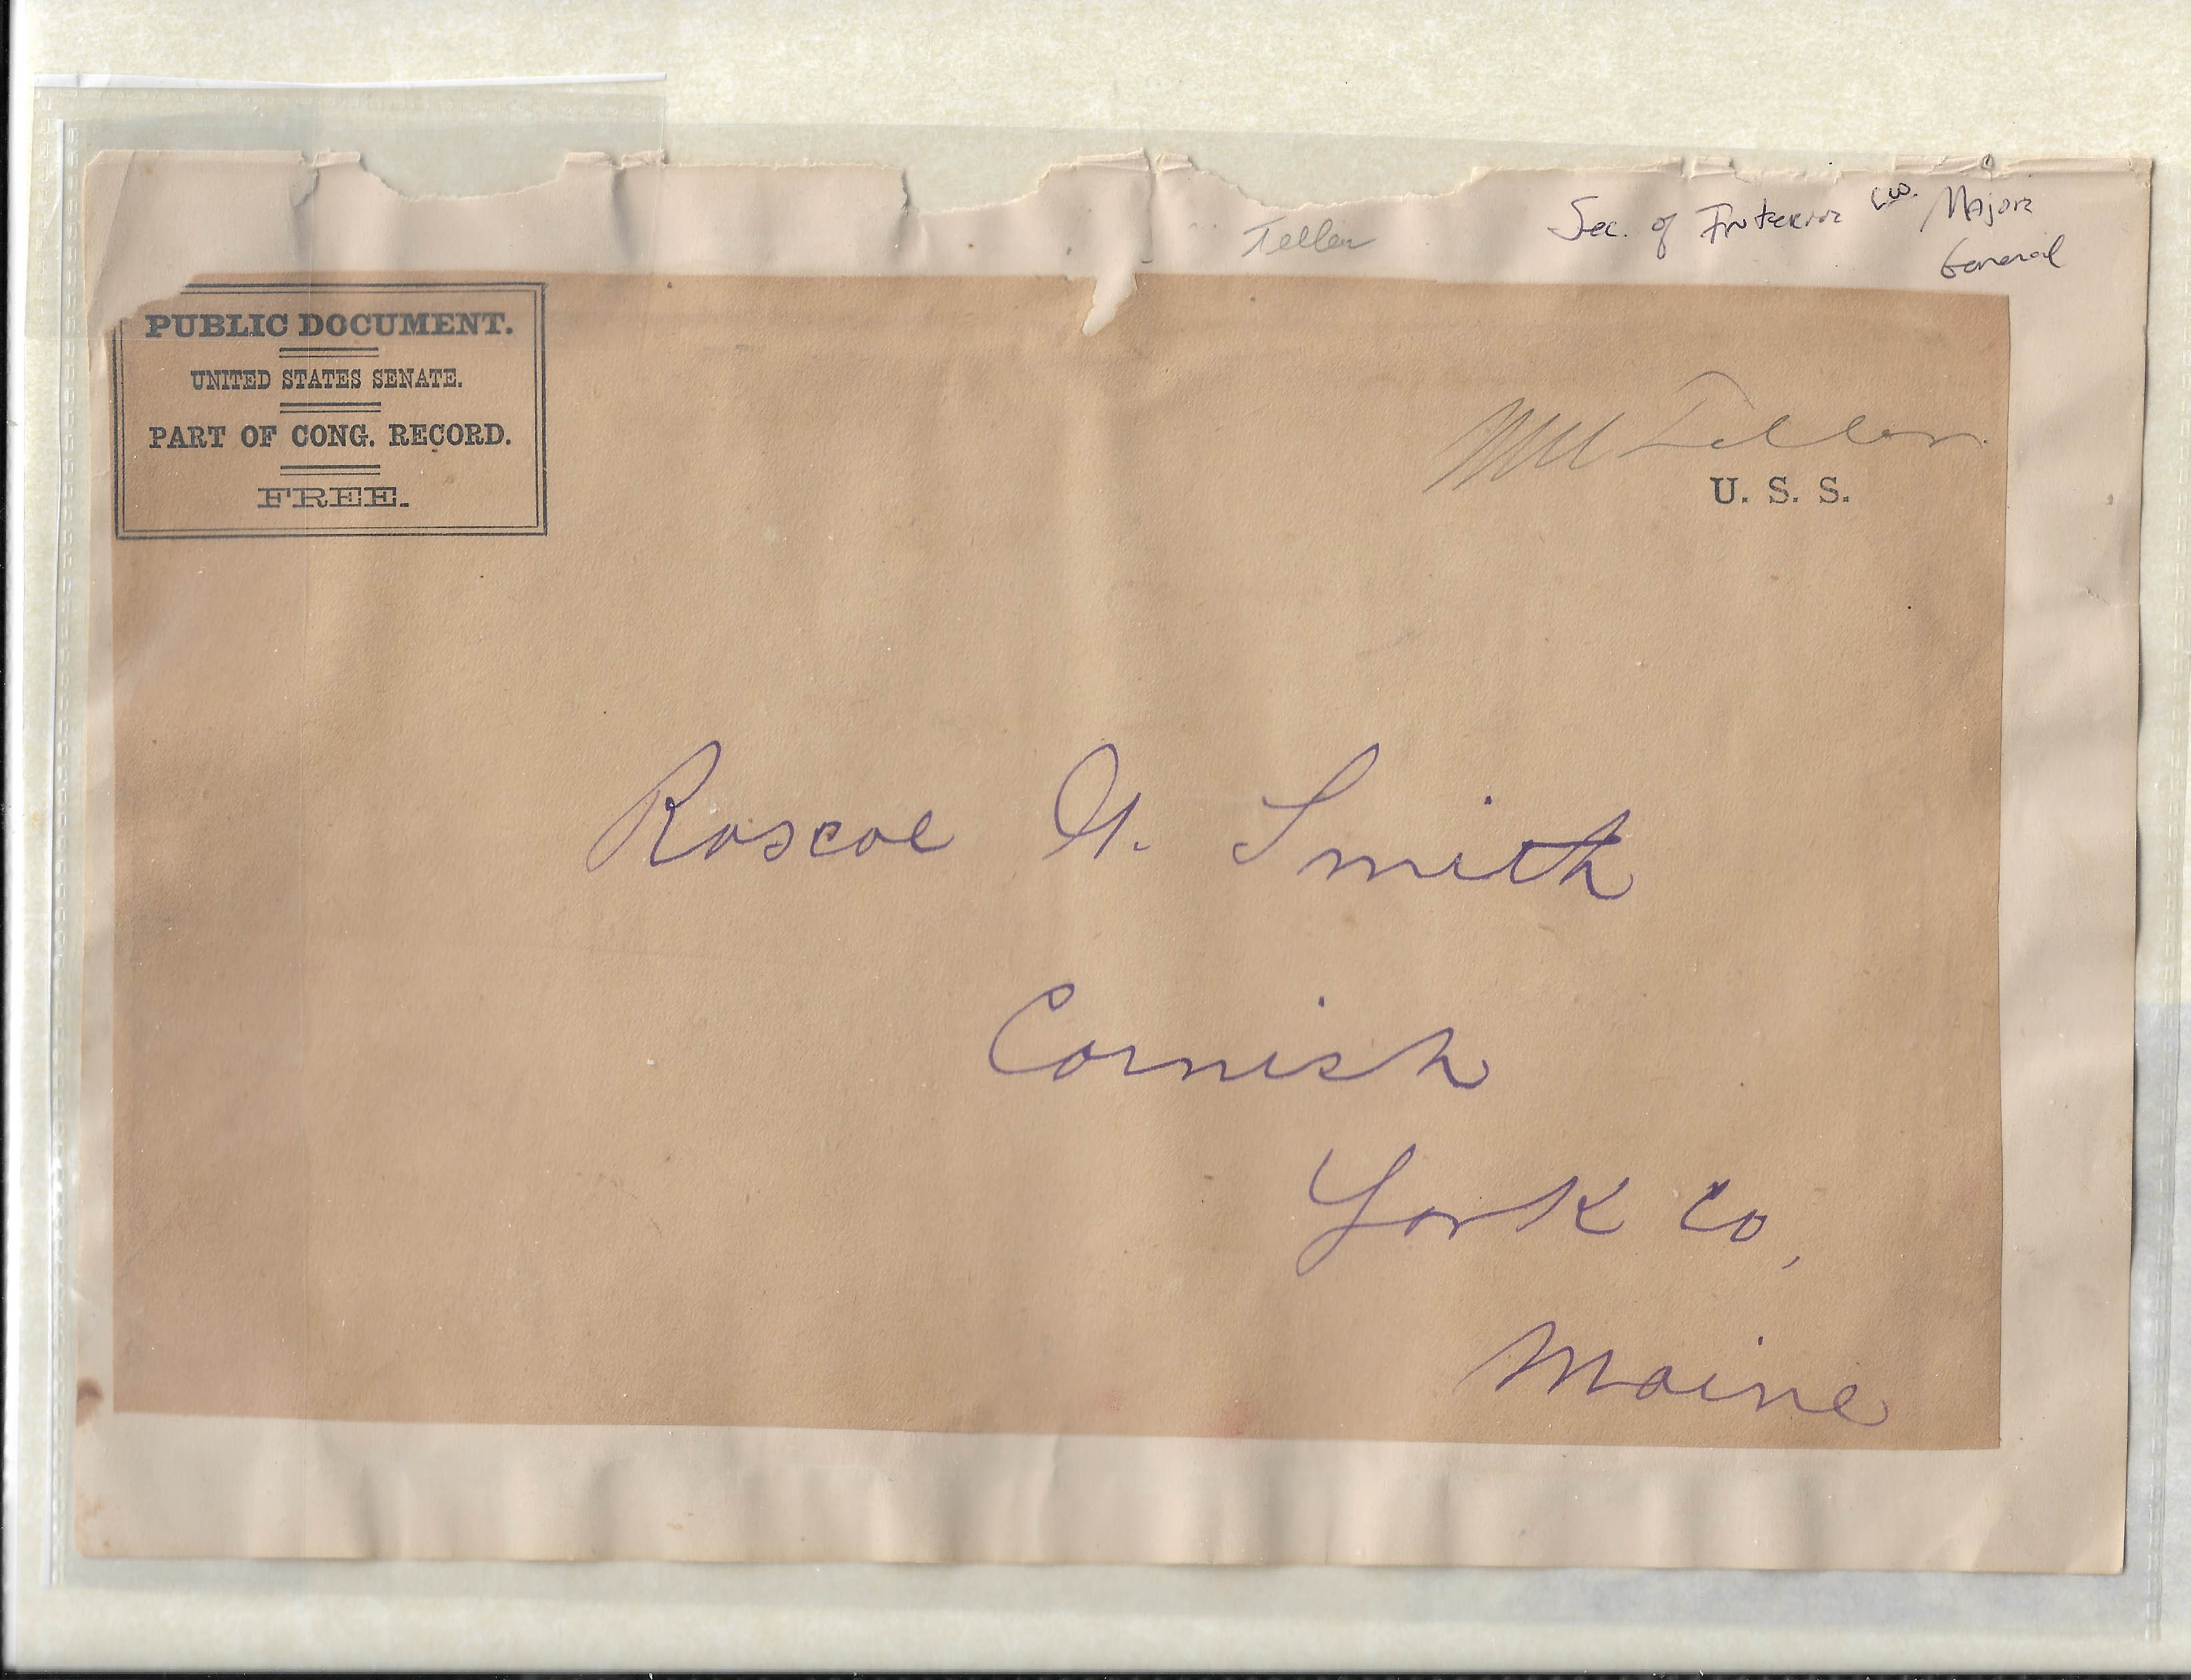 Teller
Sec. of Interior C.W. Major
General
PUBLIC DOCUMENT.
UNITED STATES SENATE.
PART OF CONG. RECORD.
FREE.
Teller
U. S. S.
Roscoe G. Smith
Cornish
York Co,
Maine